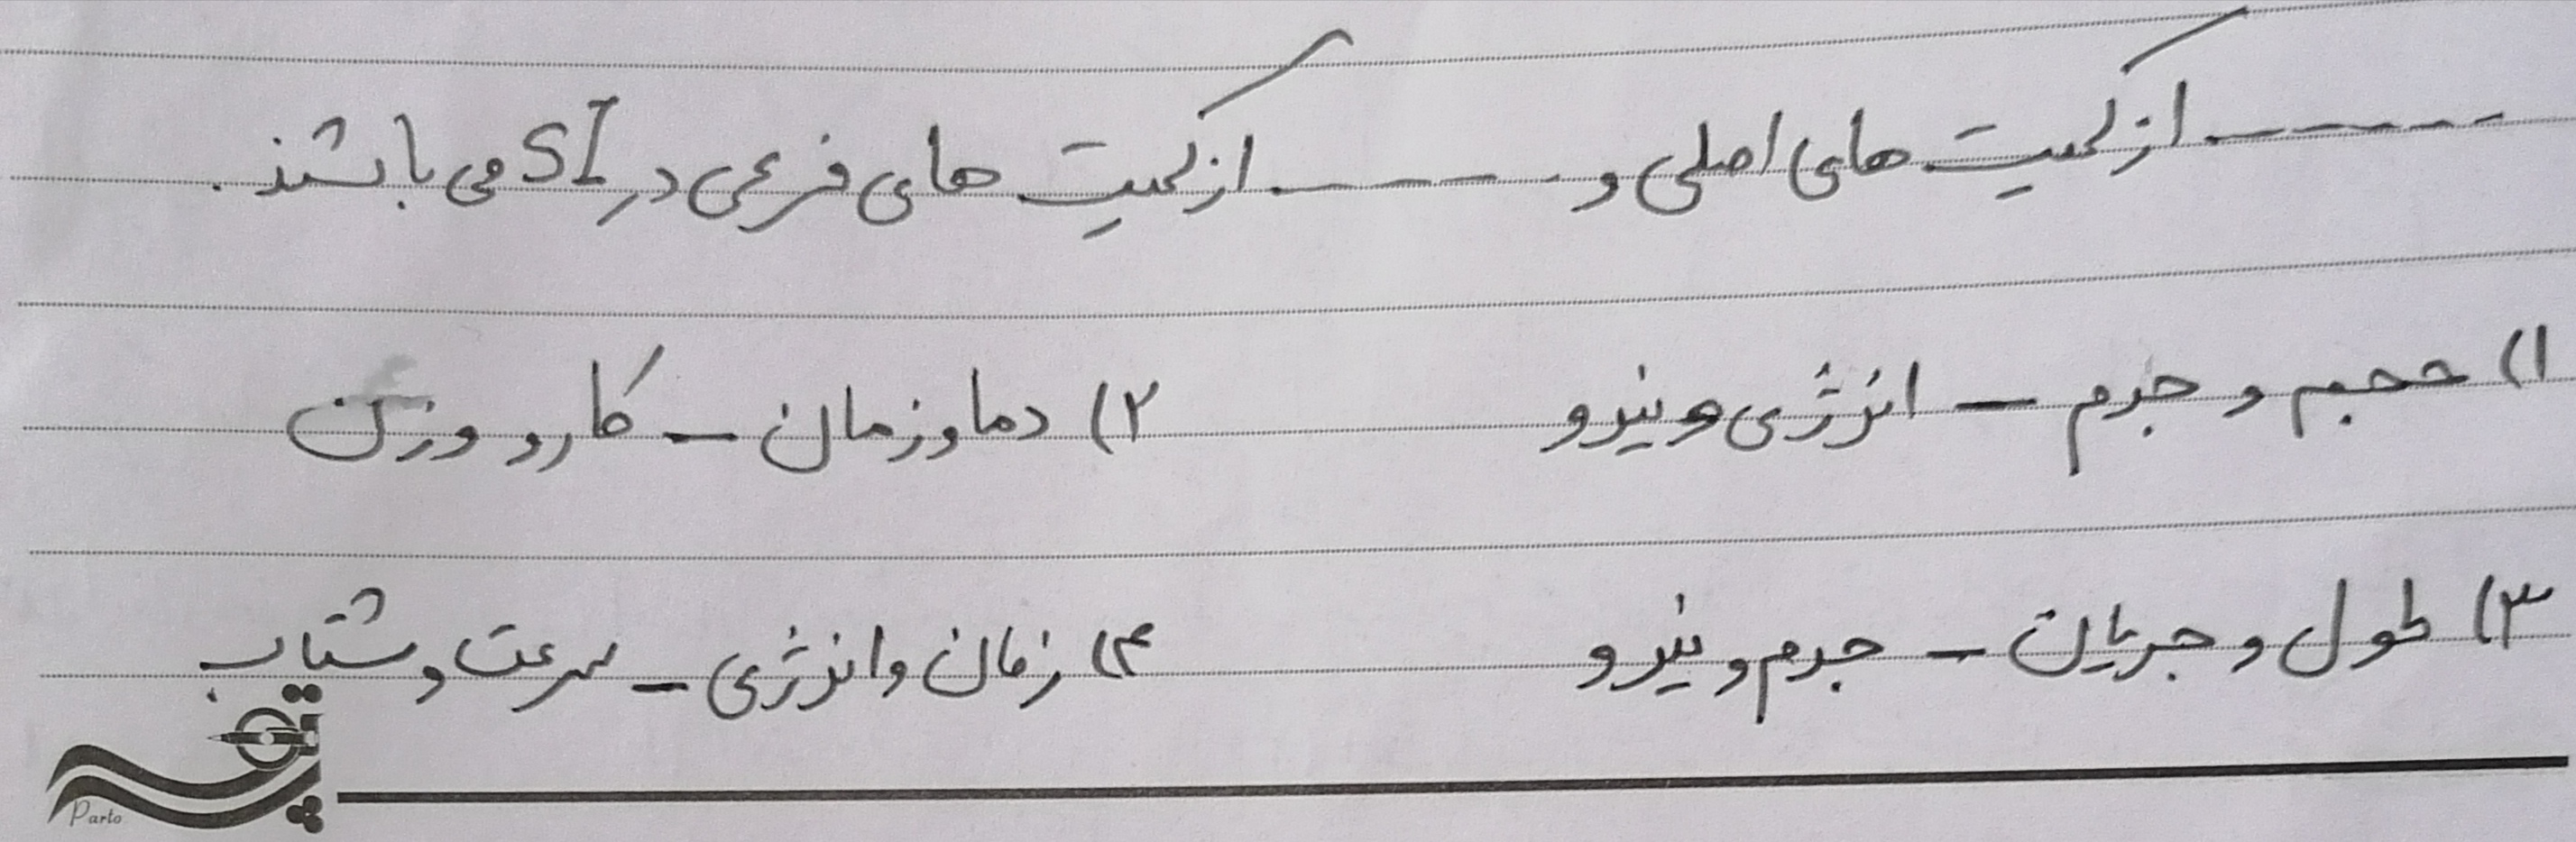 ------ از کمیت های اصلی و ------ از کمیت های فرعی در SI می باشند.
۱) حجم و جرم – انرژی و نیرو ۲) دما و زمان – کار و وزن
۳) طول و جریان – جرم و نیرو ۴) زمان و انرژی – سرعت و شتاب
پرتو
Parto